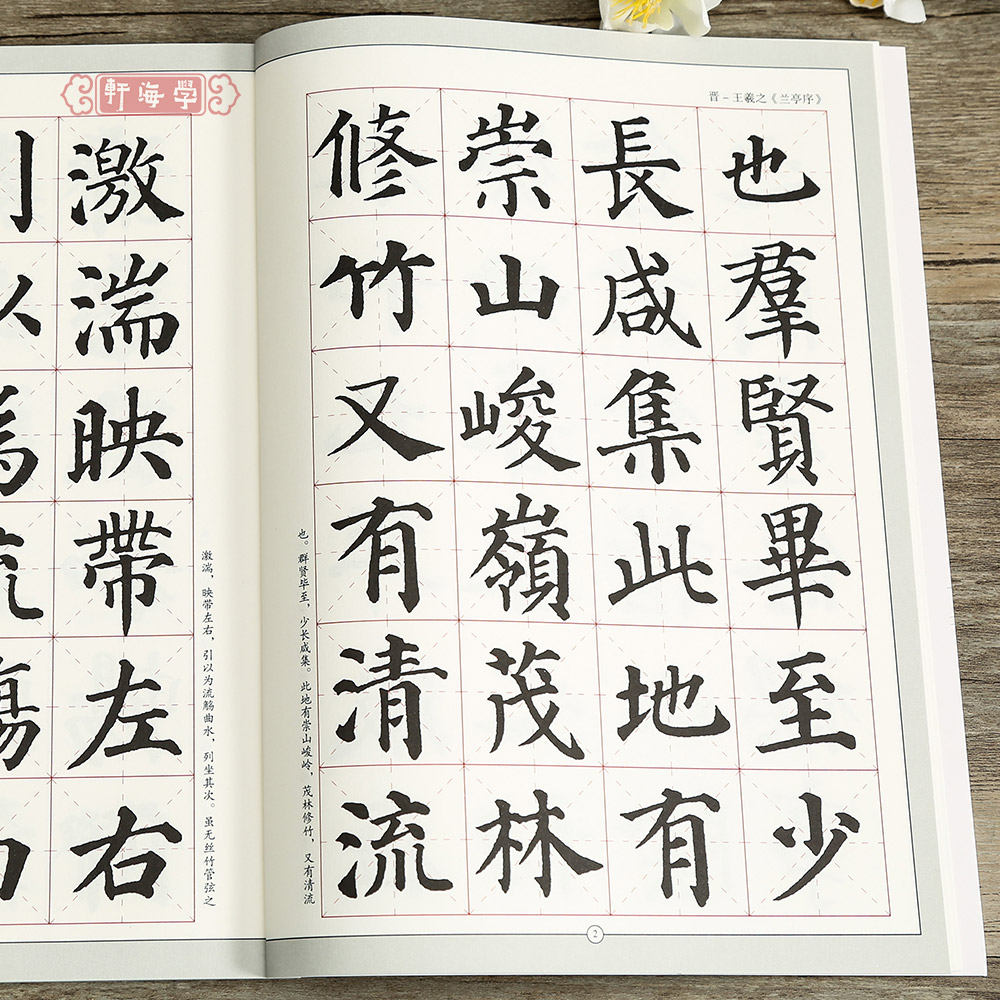 學海軒
晋－王羲之《兰亭序》
也羣賢畢至少
長咸集此地有
崇山峻嶺茂林
修竹又有清流
也。群贤毕至，少长咸集。此地有崇山峻岭，茂林修竹，又有清流
2
激湍，映带左右，引以为流觞曲水，列坐其次。虽无丝竹管弦之
激湍映帶左右